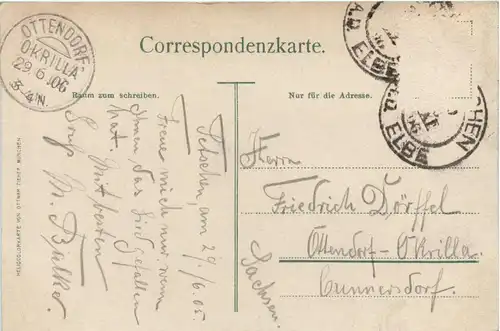 OTTENDORF
OKRILLA
29.6.06
3-4N.
Correspondenzkarte.
A.D. ELBE
CHEN
ELBE
Raum zum schreiben.
Nur für die Adresse.
Tetschen, am 29/6.05.
Freue mich nur wenn
Ihnen das Lied gefallen
hat.
Mit besten
Gruß M. Bülker.
Herrn
Friedrich Dörffel
Ottendorf-Okrilla.
Cunnersdorf.
Sachsen.
HELIOCOLORKARTE VON OTTMAR ZIEHER, MÜNCHEN